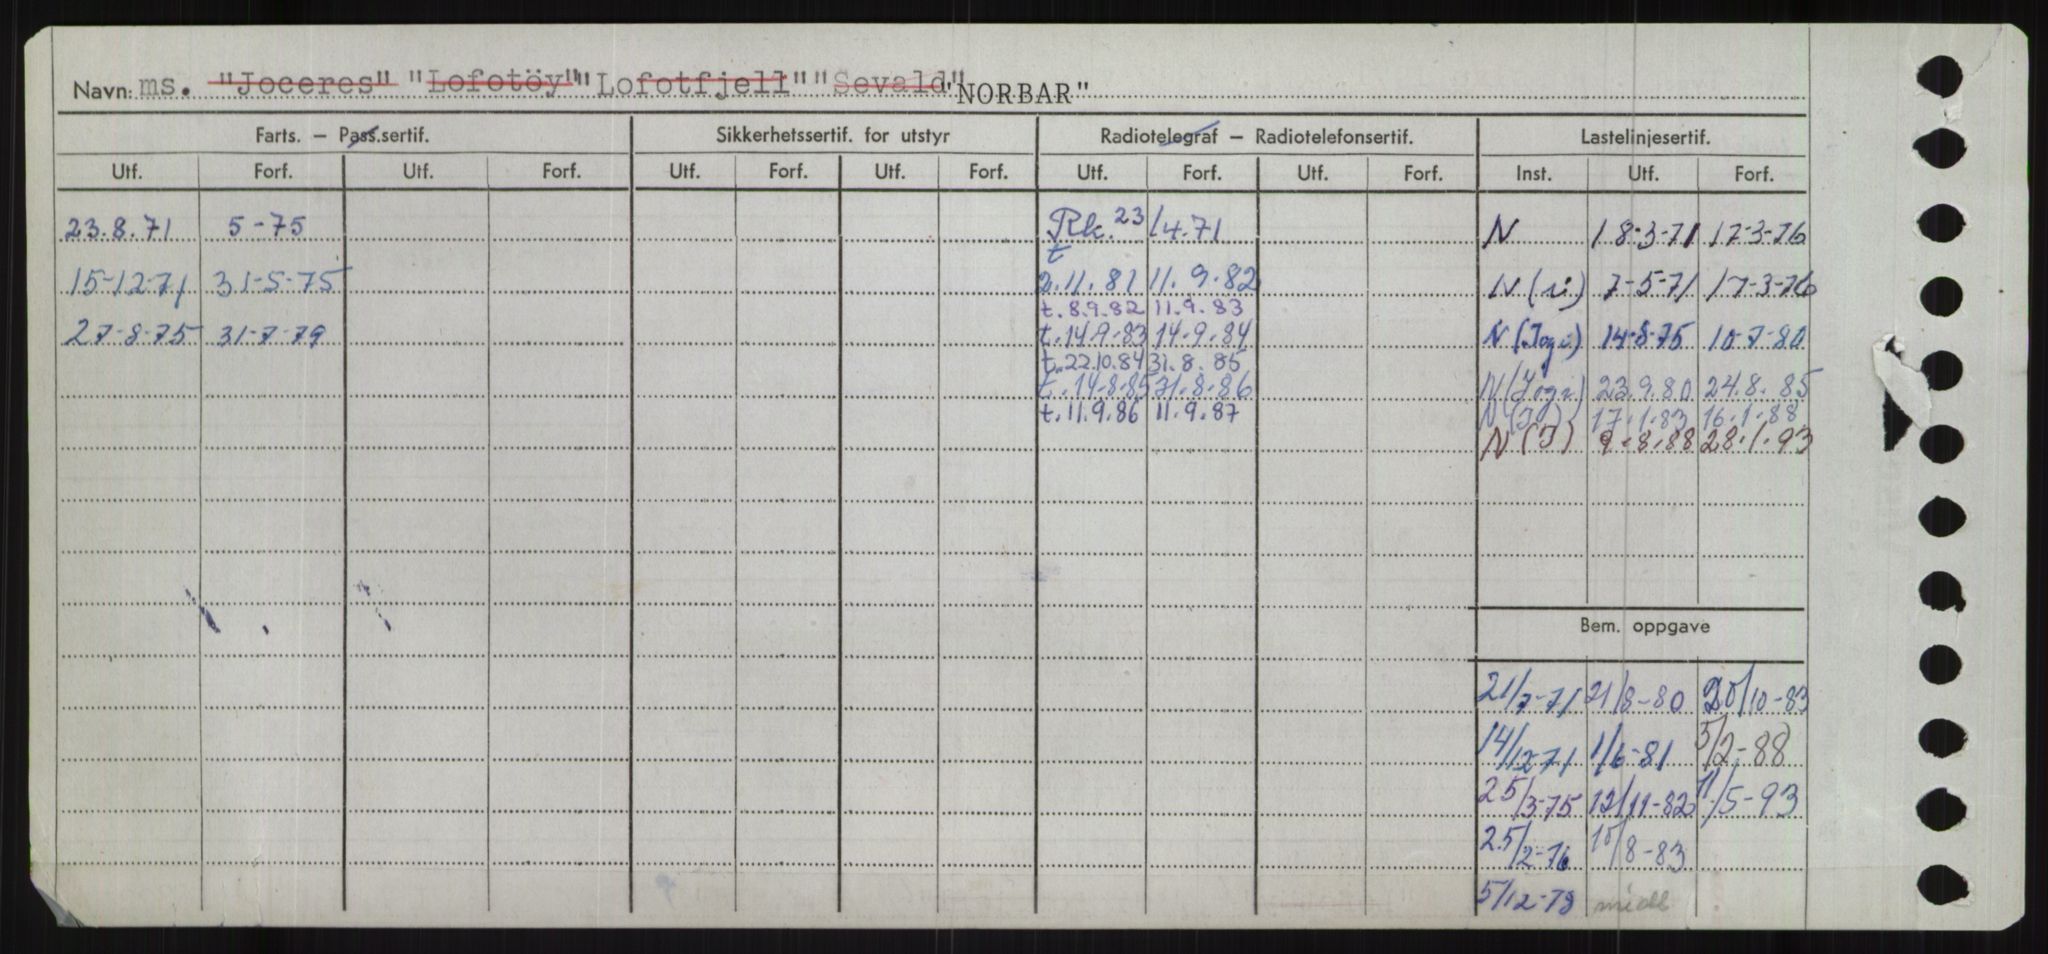 Navn: ms. "Joceres" "Lofotöy" "Lofotfjell" "Sevald" "NORBAR"
Farts. – Pass.sertif. Sikkerhetssertif. for utstyr Radiotelegraf – Radiotelefonsertif. Lastelinjesertif.
Utf. Forf. Utf. Forf. Utf. Forf. Utf. Forf. Utf. Forf. Utf. Forf. Inst. Utf. Forf.
23.8.71 5-75 Rk. 23/4.71 N 18-3-71 17-3-76
t
15-12-71 31-5-75 2.11.81 11.9.82 N (i) 7-5-71 17-3-76
t. 8.9.82 11.9.83
27-8-75 31-7-79 t. 14.9-83 14-9.84 N (I og i) 14-8-75 10-7-80
t. 22.10.84 31.8.85
t. 14-8-85 31-8-86 N (I og i) 23.9.80 24.8.85
t. 11.9.86 11.9.87 N (I) 17.1.83 16.1.88
N (I) 9.8.88 28.1.93
Bem. oppgave
21/7-71 21/8-80 20/10-83
14/12-71 1/6-81 5/2-88
25/3-75 12/11-82 11/5-93
25/2-76 15/8-83
5/12-79